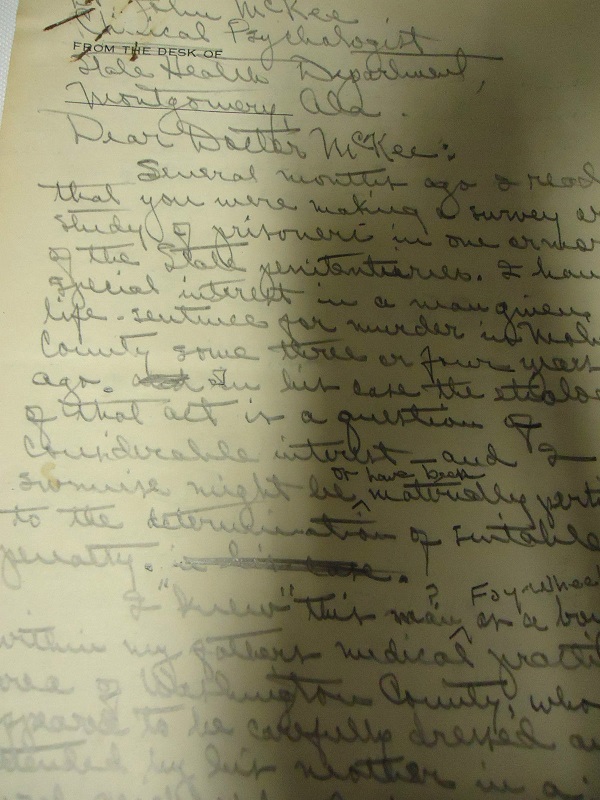 John McKee
Clinical Psychologist
FROM THE DESK OF
State Health Department,
Montgomery, Ala.
Dear Doctor McKee:
Several months ago I read
that you were making a survey or
study of prisoners in one or more
of the State penitentiaries. I have
special interest in a man given
life-sentence for murder in Mob
County some three or four years
ago. In his case the etiolo
of that act is a question of
considerable interest – and I
surmise might be, or have been materially perti
to the determination of suitable
penalty.
I "knew" this man, ? as a boy
within my father's medical practi
area of Washington County, who
appeared to be carefully dressed a
attended by his mother in a